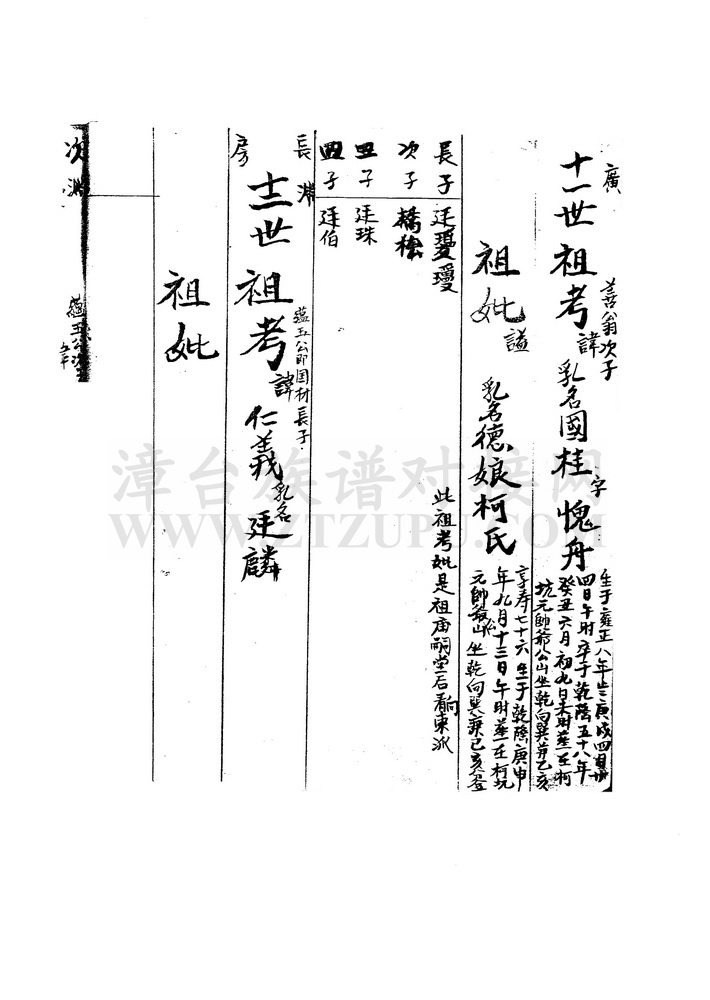 廣
善翁次子
十一世祖考諱乳名國桂字愧舟
生于雍正八年 庚戌四月
四日午时卒于乾隆五十八年
癸丑六月初九日未时葬在柯
坑元帥爺公山坐乾向巽 乙亥
祖妣謚乳名德娘柯氏
享寿七十六生于乾隆庚申
年九月十三日午时葬在柯坑
元帥爺公山坐乾向巽 已亥
此祖考妣是祖庙嗣堂后看向東派
長子廷璦
次子
三子廷珠
四子廷伯
長房
淵
蕴玉公即国材長子
十二世祖考諱仁義乳名廷麟
祖妣
次淵
蕴玉公次
漳台族谱对接网
WWW.ZTZUPU.COM